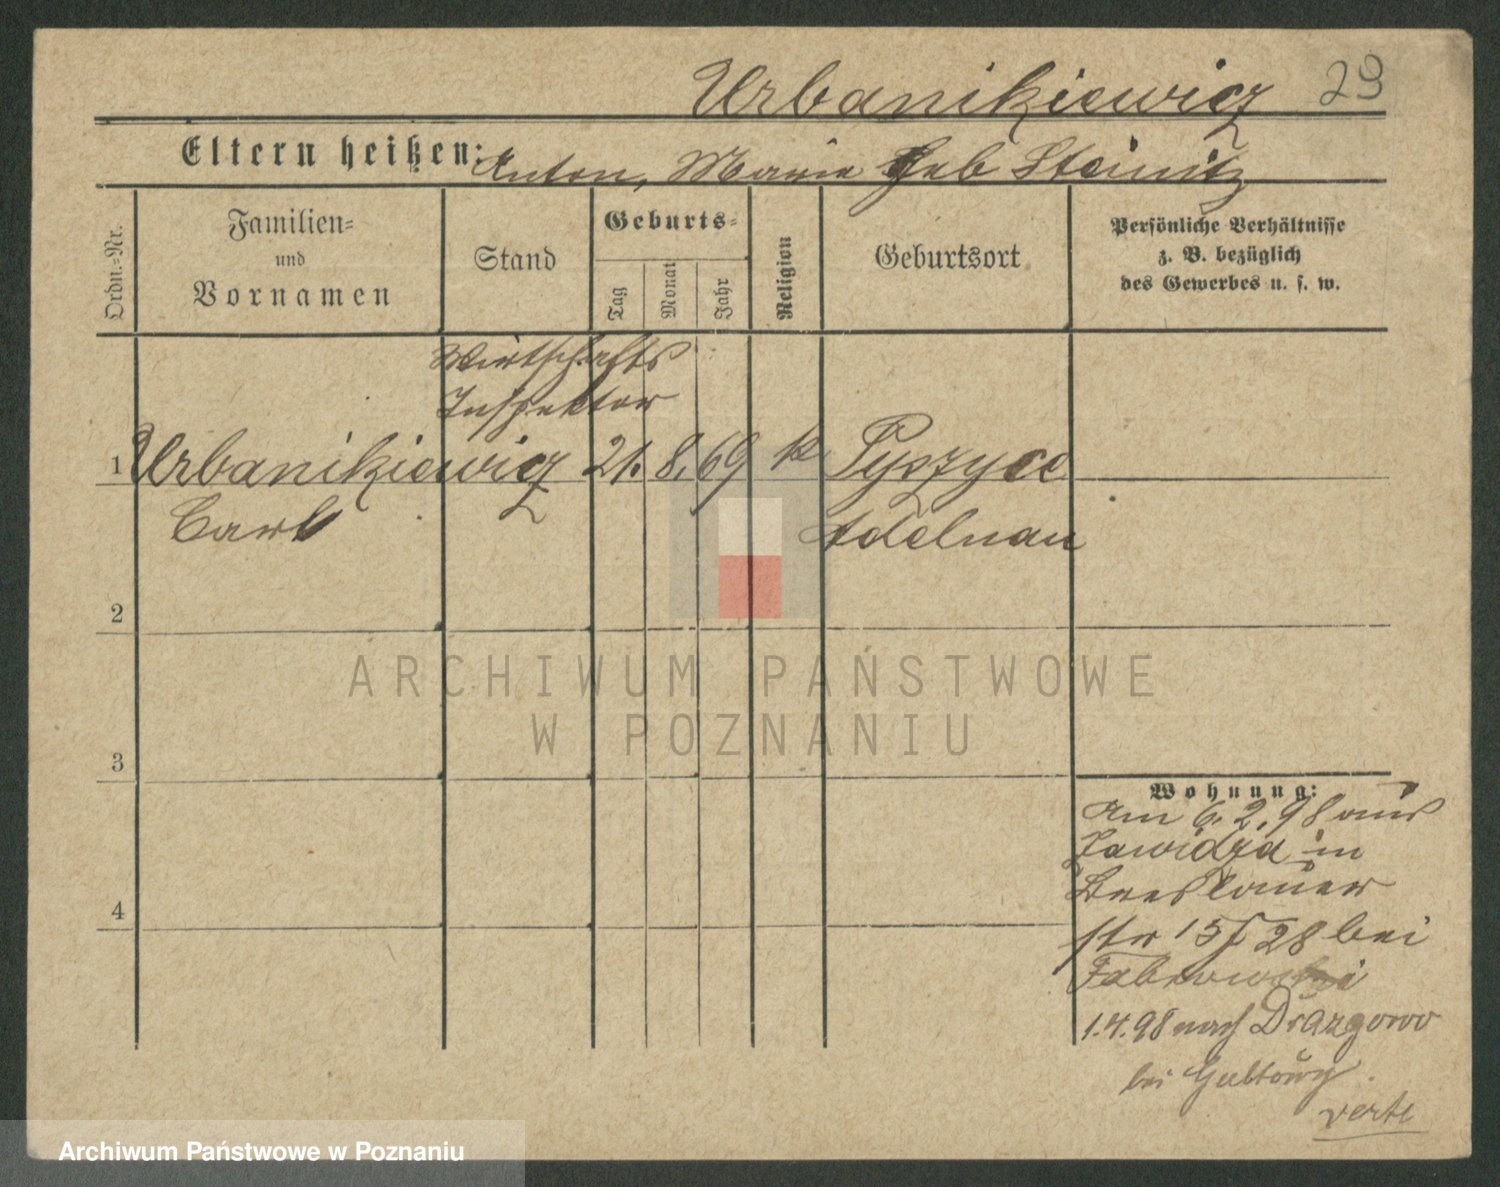 Urbanikiewicz 29
Eltern heißen: Anton, Marie geb Steinitz
Ordn.=Nr.
Familien=
und
Vornamen
Stand
Geburts=
Tag
Monat
Jahr
Religion
Geburtsort
Persönliche Verhältnisse
z. B. bezüglich
des Gewerbes u. s. w.
Wirtschafts
Inspektor
1 Urbanikiewicz 21. 8. 69 k
Carl Adelnau
2
ARCHIWUM PAŃSTWOWE
W POZNANIU
3
Wohnung:
Am 6. 2. 98 aus
Zawidza in
Breslauer
str 15 28 bei
1.4.98 nach
4
bei
verte
Archiwum Państwowe w Poznaniu